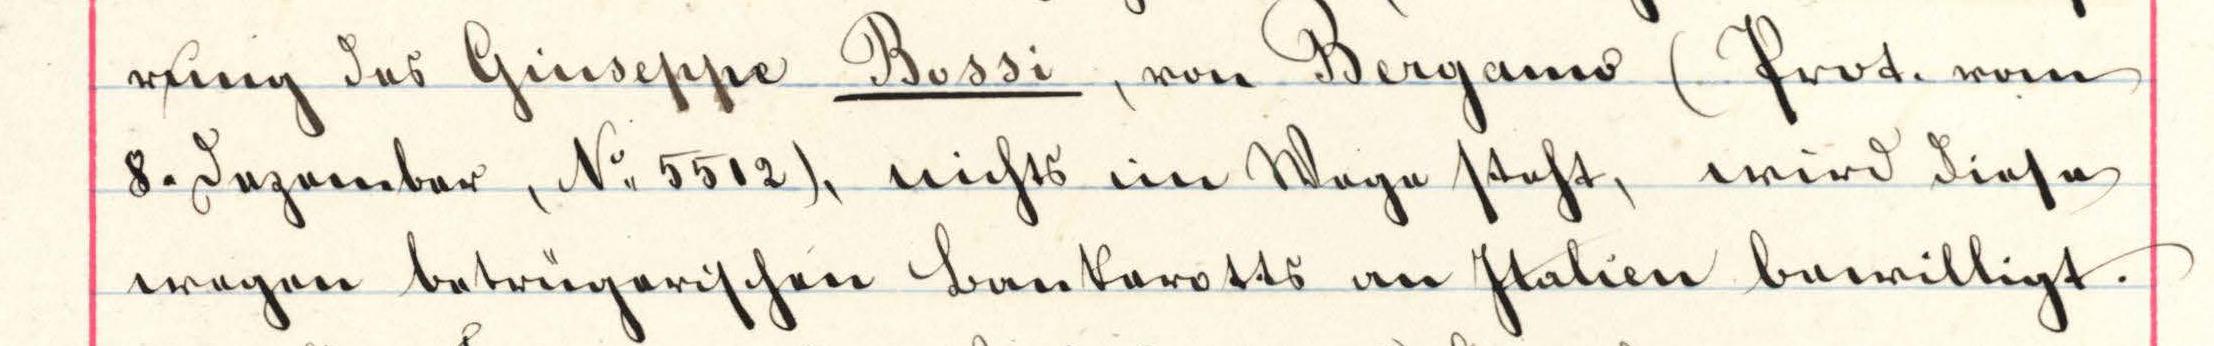 rung des Giuseppe Bossi, von Bergamo (Prot. vom
8. Dezember, No. 5512), nichts im Wege steht, wird diese
wegen betrügerischen Bankerotts an Italien bewilligt.